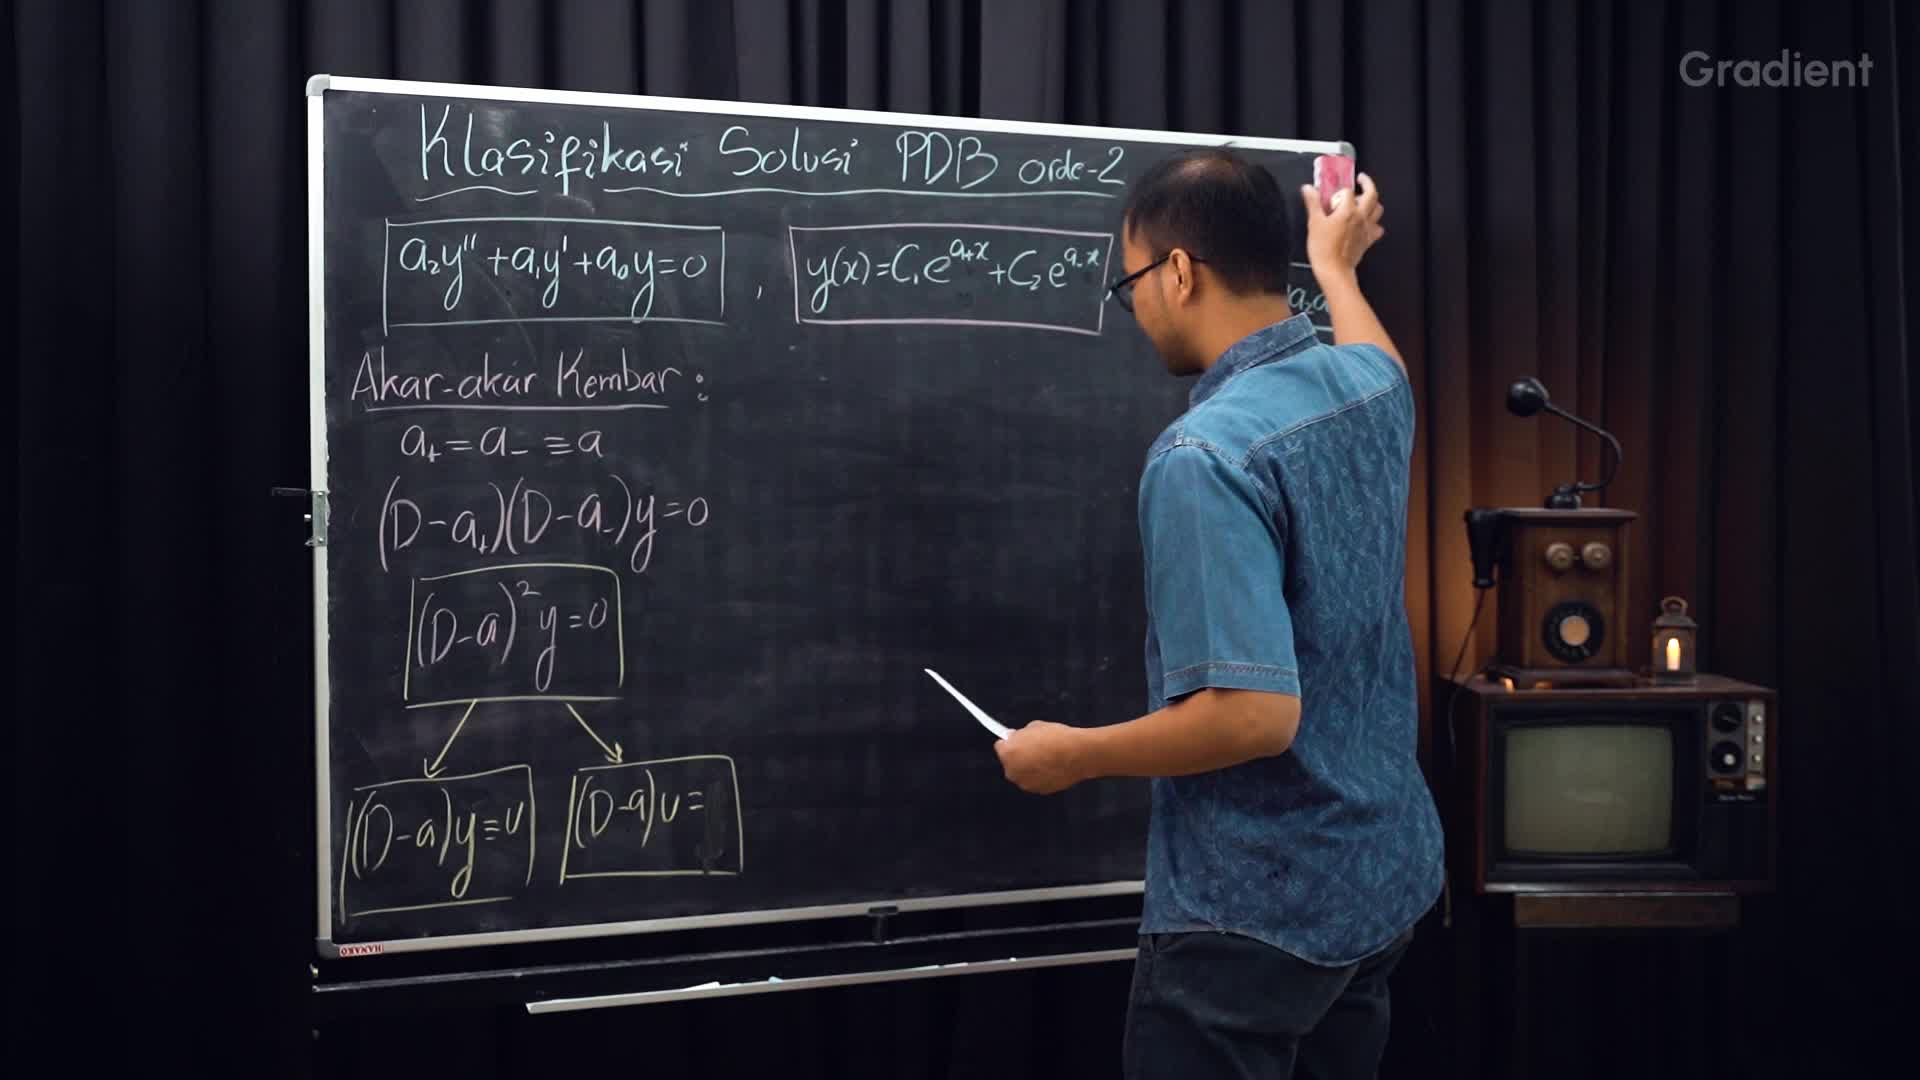 Gradient
Klasifikasi Solusi PDB orde-2
a₂y'' + a₁y' + a₀y = 0 , y(x) = C₁e^{a₊x} + C₂e^{a₋x},
Akar-akar Kembar :
a₊ = a₋ ≡ a
(D-a₊)(D-a₋)y = 0
(D-a)²y = 0
(D-a)y ≡ v (D-a)v =
HANAKO